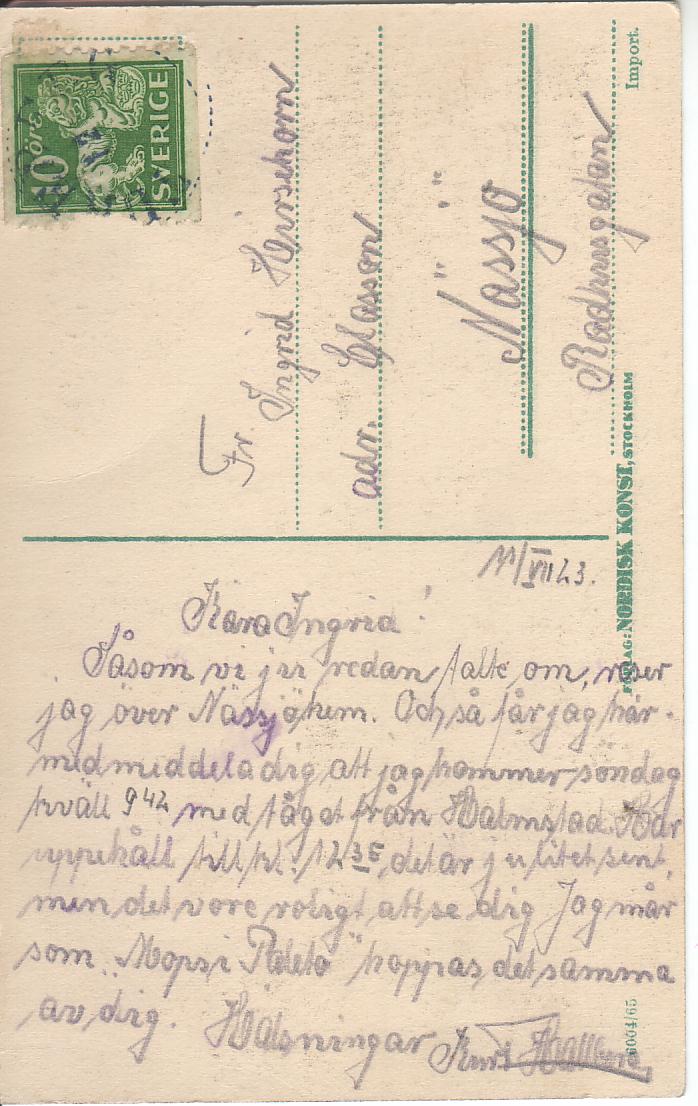 10 öre
SVERIGE
Fr. Ingrid Hirsekorn
adr. Classon
Nässjö
Rådhusgatan
Import.
FÖRLAG: NORDISK KONST, STOCKHOLM
6004/65
/VII 23.
Kära Ingrid!
Såsom vi ju redan talte om, reser
jag över Nässjö hem. Och så får jag här-
med meddela dig, att jag kommer söndag
kväll 9 42 med tåget från Halmstad. Har
uppehåll till kl. 12 35, det är ju litet sent,
men det vore roligt att se dig. Jag mår
som "Mops i Paleto" hoppas det samma
av dig. Hälsningar Kurt